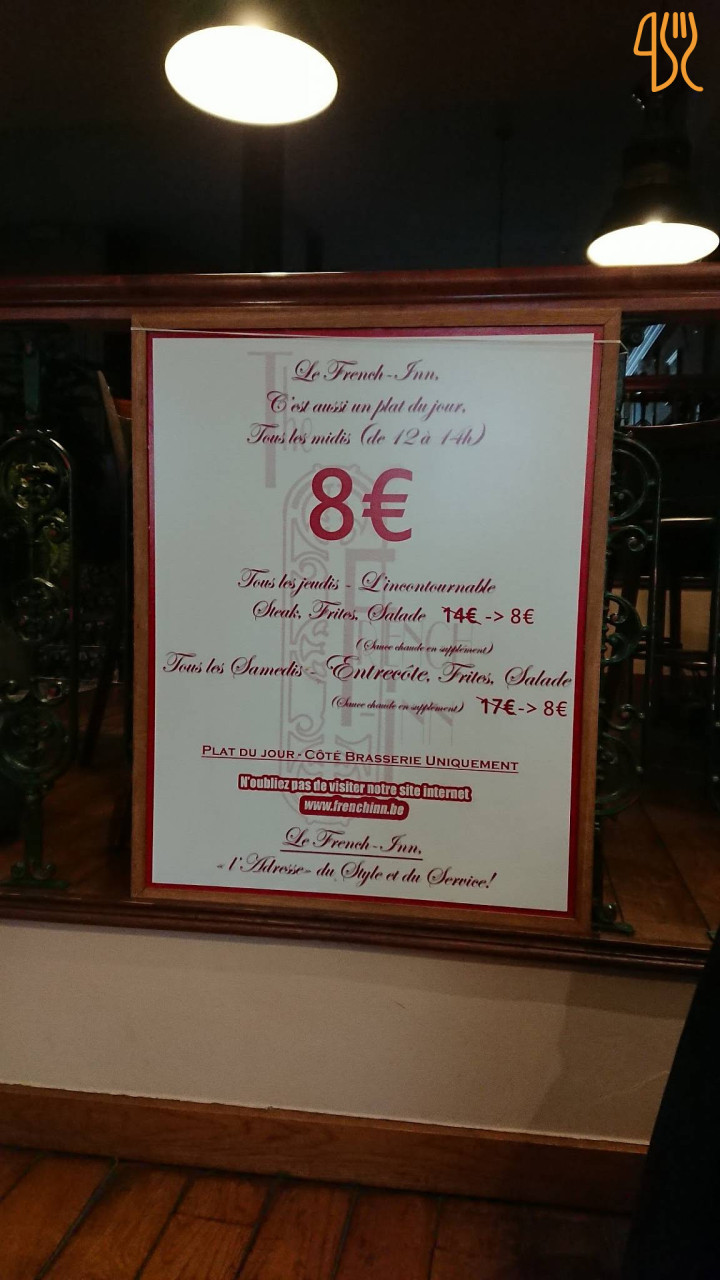 Le French-Inn,
C'est aussi un plat du jour,
Tous les midis (de 12 à 14h)
8€
Tous les jeudis - L'incontournable
Steak, Frites, Salade 14€ -> 8€
(Sauce chaude en supplément)
Tous les Samedis - Entrecôte, Frites, Salade
(Sauce chaude en supplément) 17€-> 8€
PLAT DU JOUR - CÔTÉ BRASSERIE UNIQUEMENT
N'oubliez pas de visiter notre site internet
www.frenchinn.be
Le French-Inn,
« l'Adresse» du Style et du Service!
The
FRENCH
INN